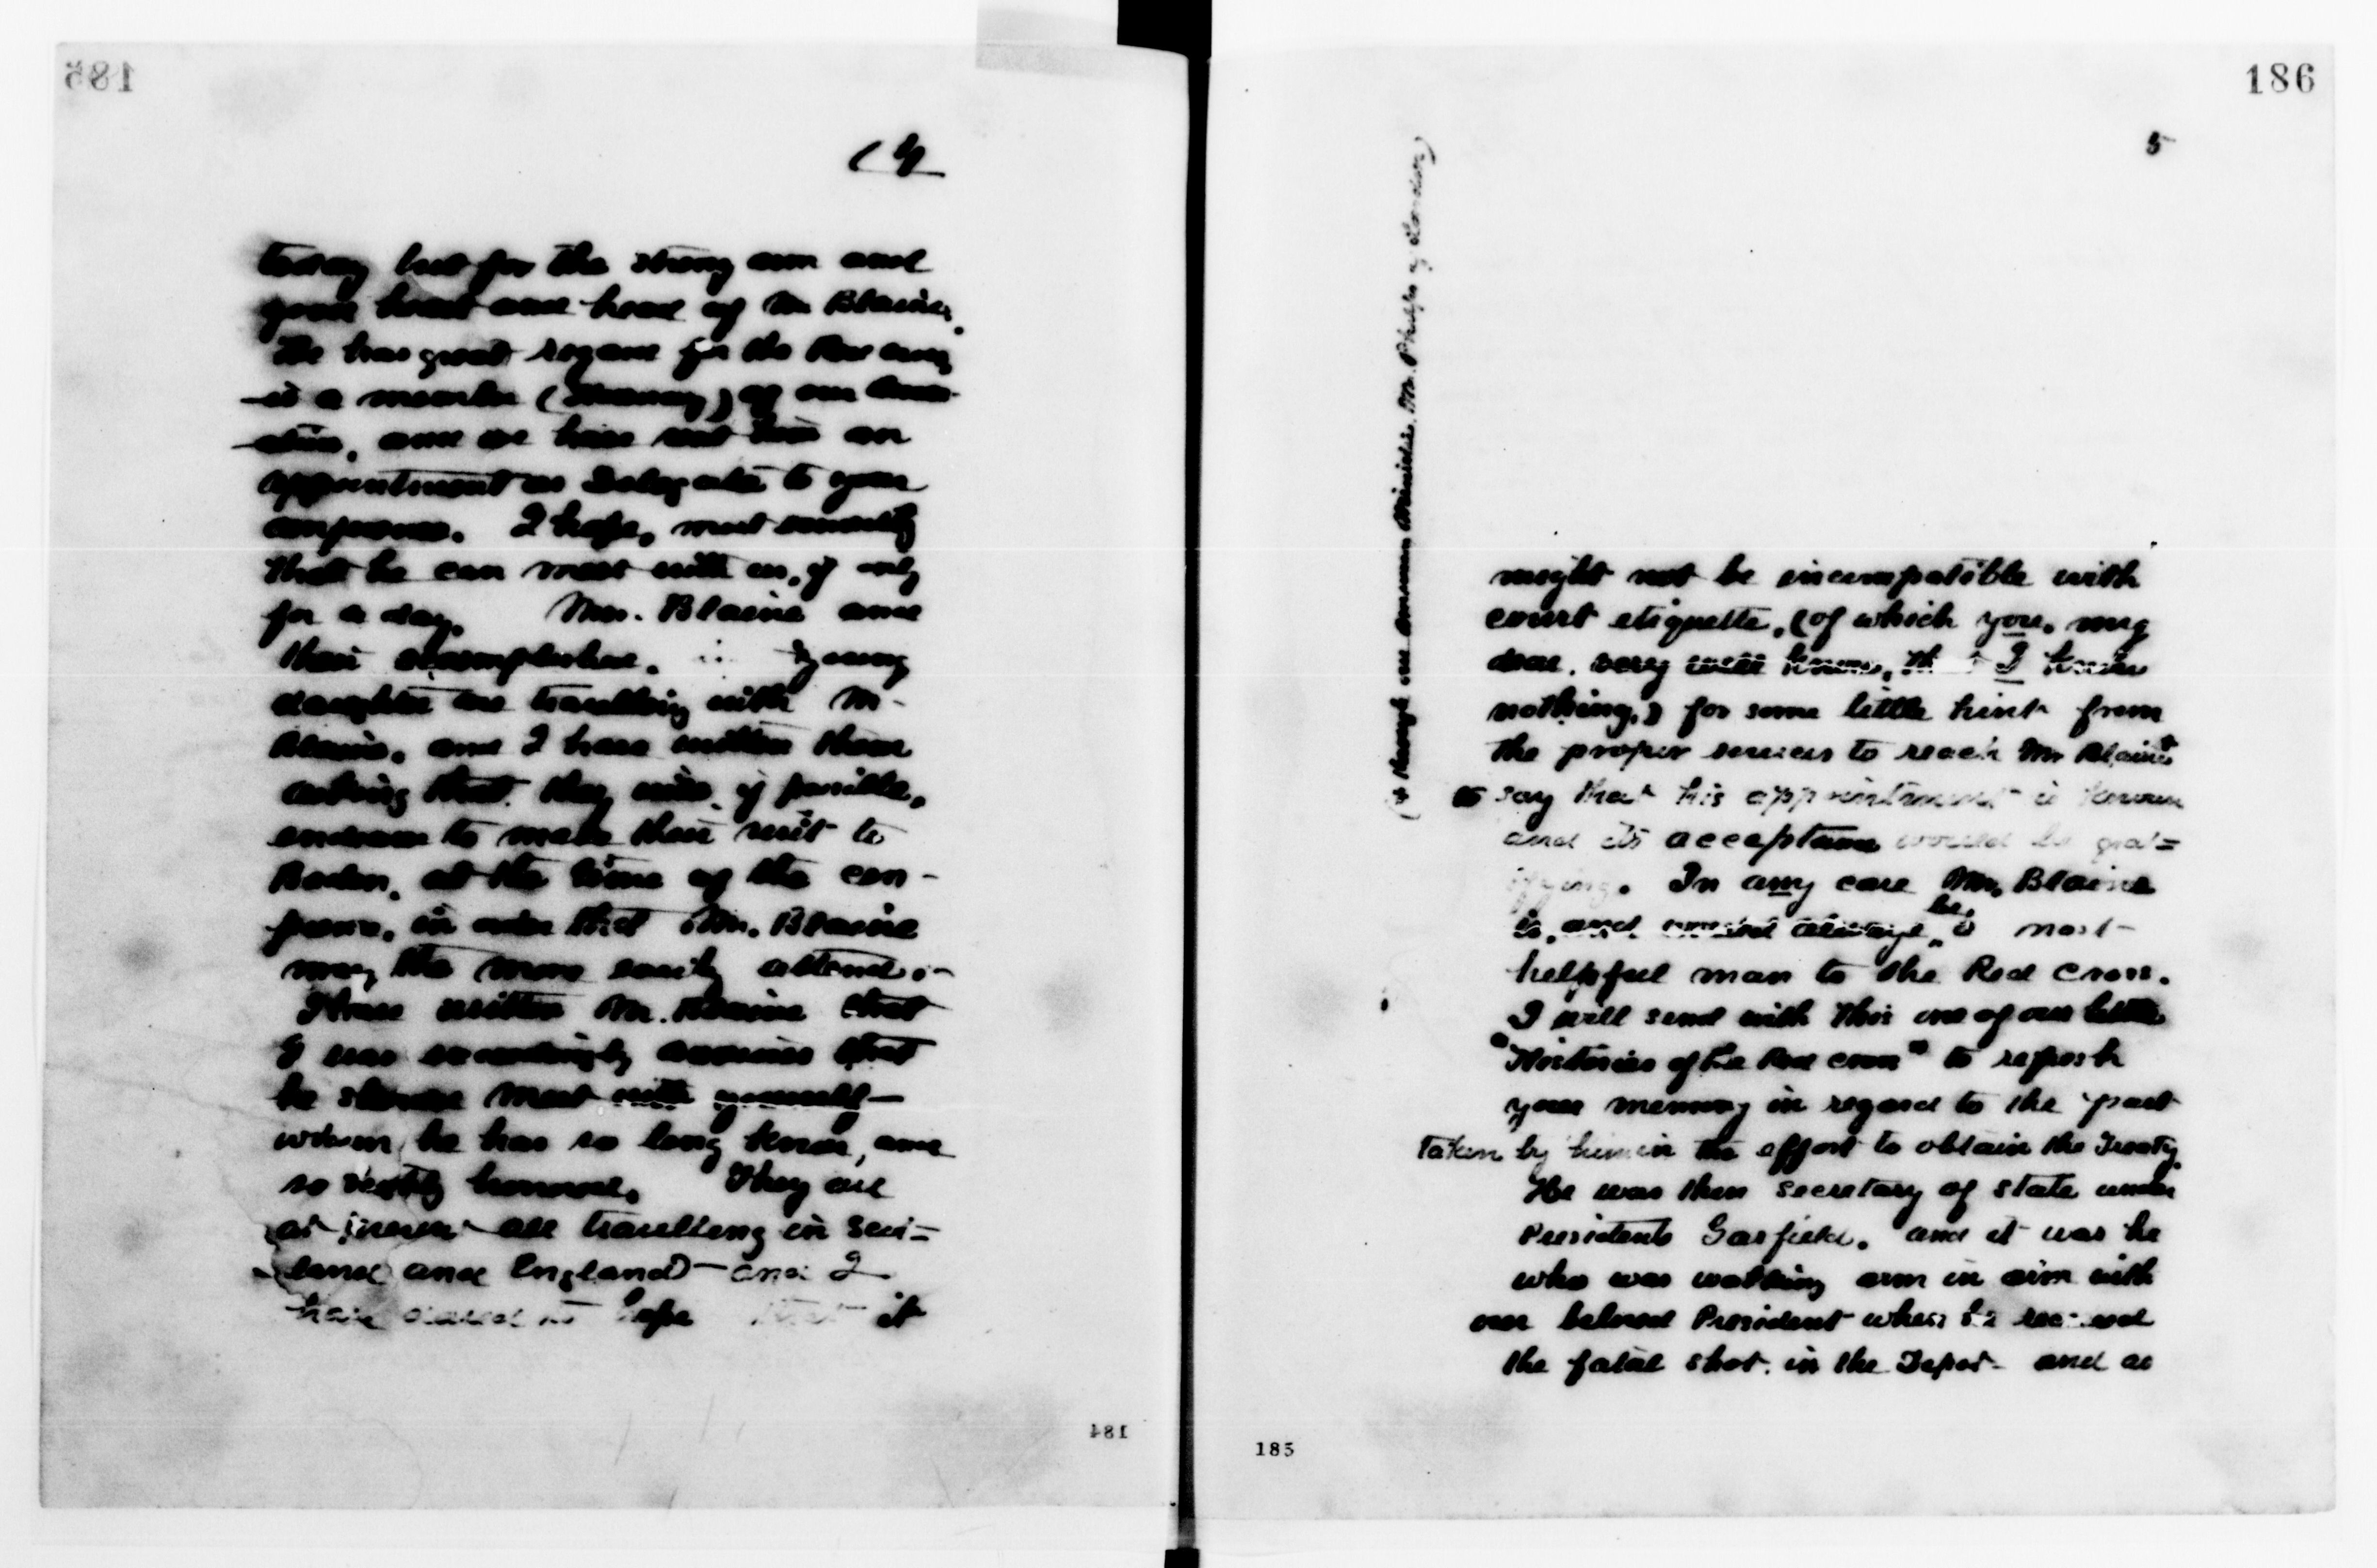 185
(4
today but for the strong arm and
great heart and head of Mr Blaine.
He has great regard for the Red Cross
is a member (Honorary) of our Asso-
ation, and we have sent him an
appointment as Delegate to your
conference. I hope, most sincerely
that he can meet with us, if only
for a day. Mrs. Blaine and
their accomplished young
daughter are travelling with Mr
Blaine, and I have written them
asking that they will, if possible,
endeavor to make their visit to
Baden, at the time of the con-
ference, in order that Mr. Blaine
may the more easily attend.
I have written Mr. Blaine that
I was exceedingly anxious that
he should meet with yourself
whom he has so long known, and
so highly honored. They are
at present all travelling in Scot-
land and England - and I
have dared to hope that it
184
186
5
might not be incompatible with
court etiquette, (of which you, my
dear, very well know, that I know
nothing,) for some little hint from
the proper sources to reach Mr Blaine
to say that his appointment is known
and its acceptance would be grat-
ifying. In any case Mr. Blaine
is, and always, be, a most
helpful man to the Red Cross.
I will send with this one of our little
"Histories of the Red Cross" to refresh
your memory in regard to the part
taken by him in the effort to obtain the Treaty.
He was then Secretary of State under
President Garfield, and it was he
who was walking arm in arm with
our beloved President when he received
the fatal shot, in the Depot - and as
(through our American Minister, Mr. Phelps of London)
185